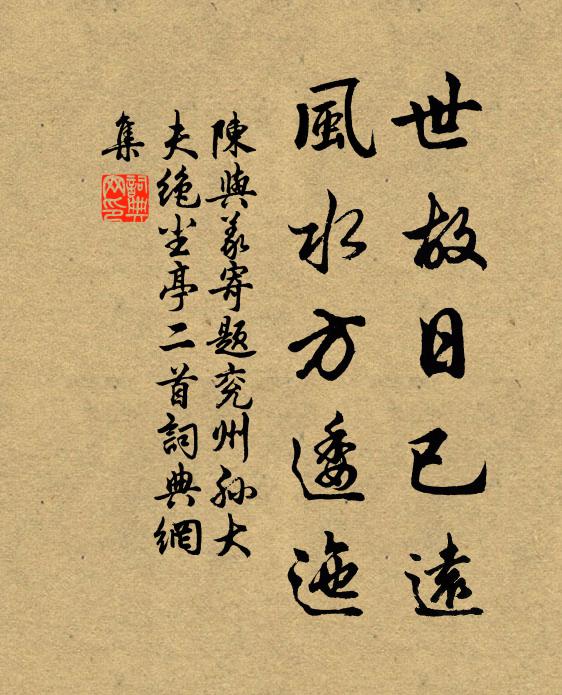 世故日已遠
風水方逶迤
陳與義寄題兖州孫大
夫絶塵亭二首詞典網
集
詞典
網印